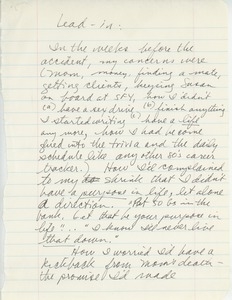 Lead-in:
In the weeks before the
accident, my concerns were
(mom, money, finding a mate,
getting clients, keeping Susan
on board at SFY, how I didn't
(a) have a sex drive, (b) finish anything
I started writing (c) have a life
any more, how I had become
glued into the trivia and the daily
schedule like any other 80's career
tracker. How I'd complained
to my shrink that I didn't
have a purpose in life, let alone
a direction. "Put $ in the
bank. Let that be your purpose in
life"... "I know I'd never live
that down."
How I worried I'd have a
kickback from Mom's death –
the promise I'd made